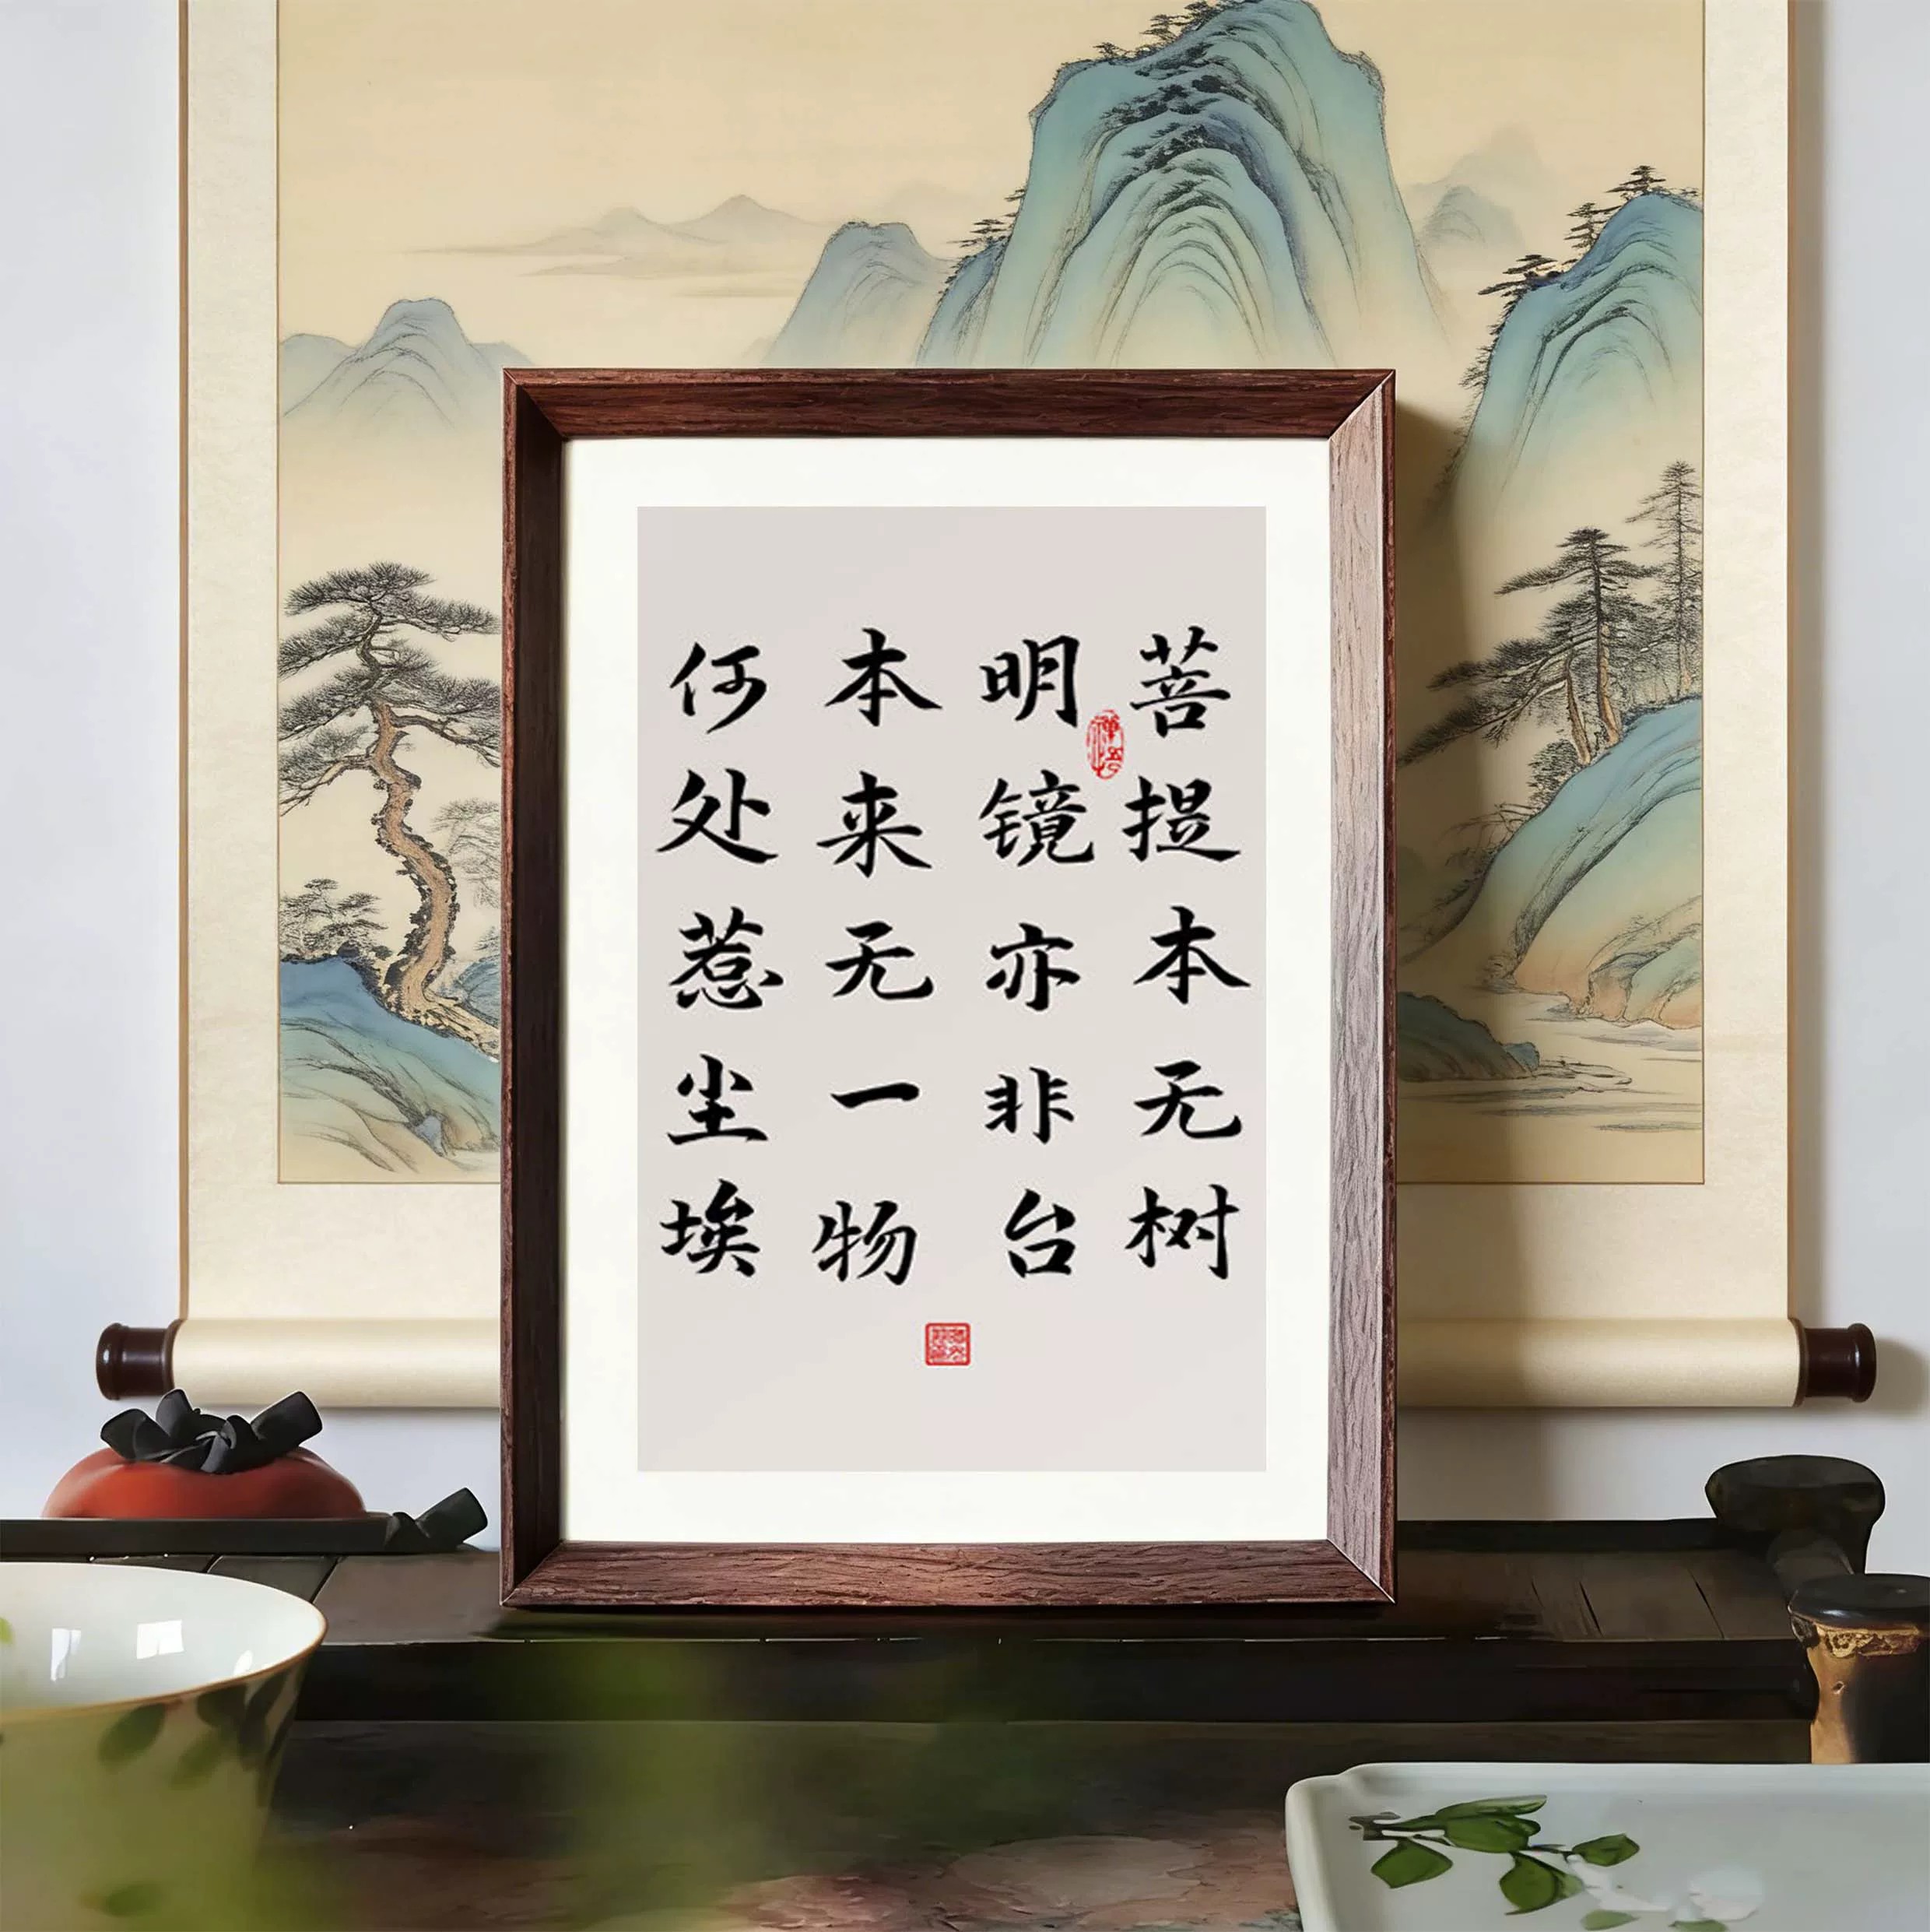 菩提本无树
明镜亦非台
本来无一物
何处惹尘埃
禅悟